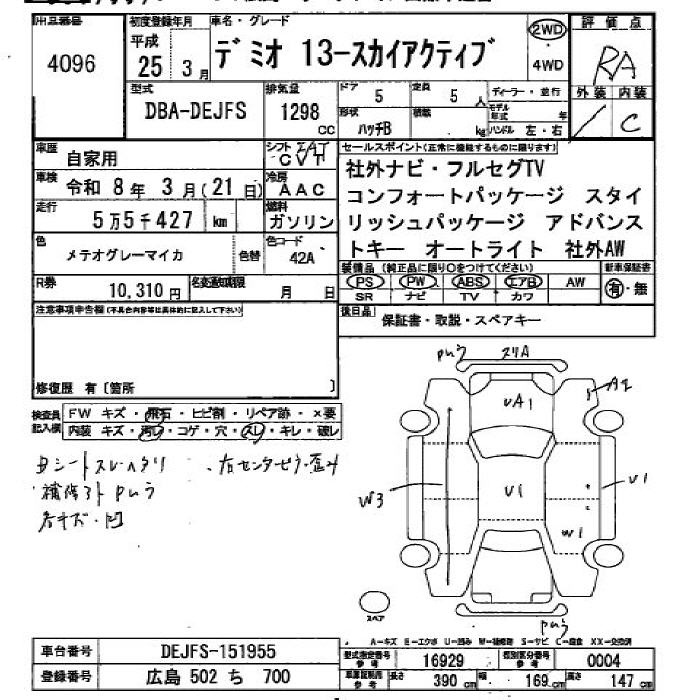 出品番号 4096
初度登録年月 平成 25 3月
車名・グレード デミオ 13-スカイアクティブ
2WD
4WD
評価点 RA
外装 内装
／ C
型式 DBA-DEJFS
排気量 1298 CC
ドア 5
定員 5 人
ディーラー・並行
モデル年式 年
形状 ハッチB
積載 kg
ハンドル 左・右
車歴 自家用
シフト CVT
車検 令和 8年 3月(21日)
冷房 AAC
走行 5万5千427 km
燃料 ガソリン
色 メテオグレーマイカ
色替
色コード 42A
R券 10,310円
名変通知期限 月 日
セールスポイント(正常に機能するものに限ります)
社外ナビ・フルセグTV
コンフォートパッケージ スタイ
リッシュパッケージ アドバンス
トキー オートライト 社外AW
装備品(純正品に限り○をつけてください)
PS PW ABS エアB AW
SR ナビ TV カワ
新車保証書 有・無
後日品 保証書・取説・スペアキー
注意事項申告欄(不具合内容等は具体的に記入して下さい)
修復歴 有〔箇所 〕
検査員記入欄
FW キズ・飛石・ヒビ割・リペア跡・×要
内装 キズ・汚レ・コゲ・穴・スレ・キレ・破レ
・右センターピラー歪み
各キズ・凹
スリA
A2
UA1
U1
W3
U1
W1
スペア
A-キズ E-エクボ U-凹み W-補修跡 S-サビ C-腐食 XX-交換済
車台番号 DEJFS-151955
登録番号 広島 502 ち 700
型式指定番号 参考 16929
類別区分番号 参考 0004
車庫証明用 参考 長さ 390 cm 幅 169 cm 高さ 147 cm